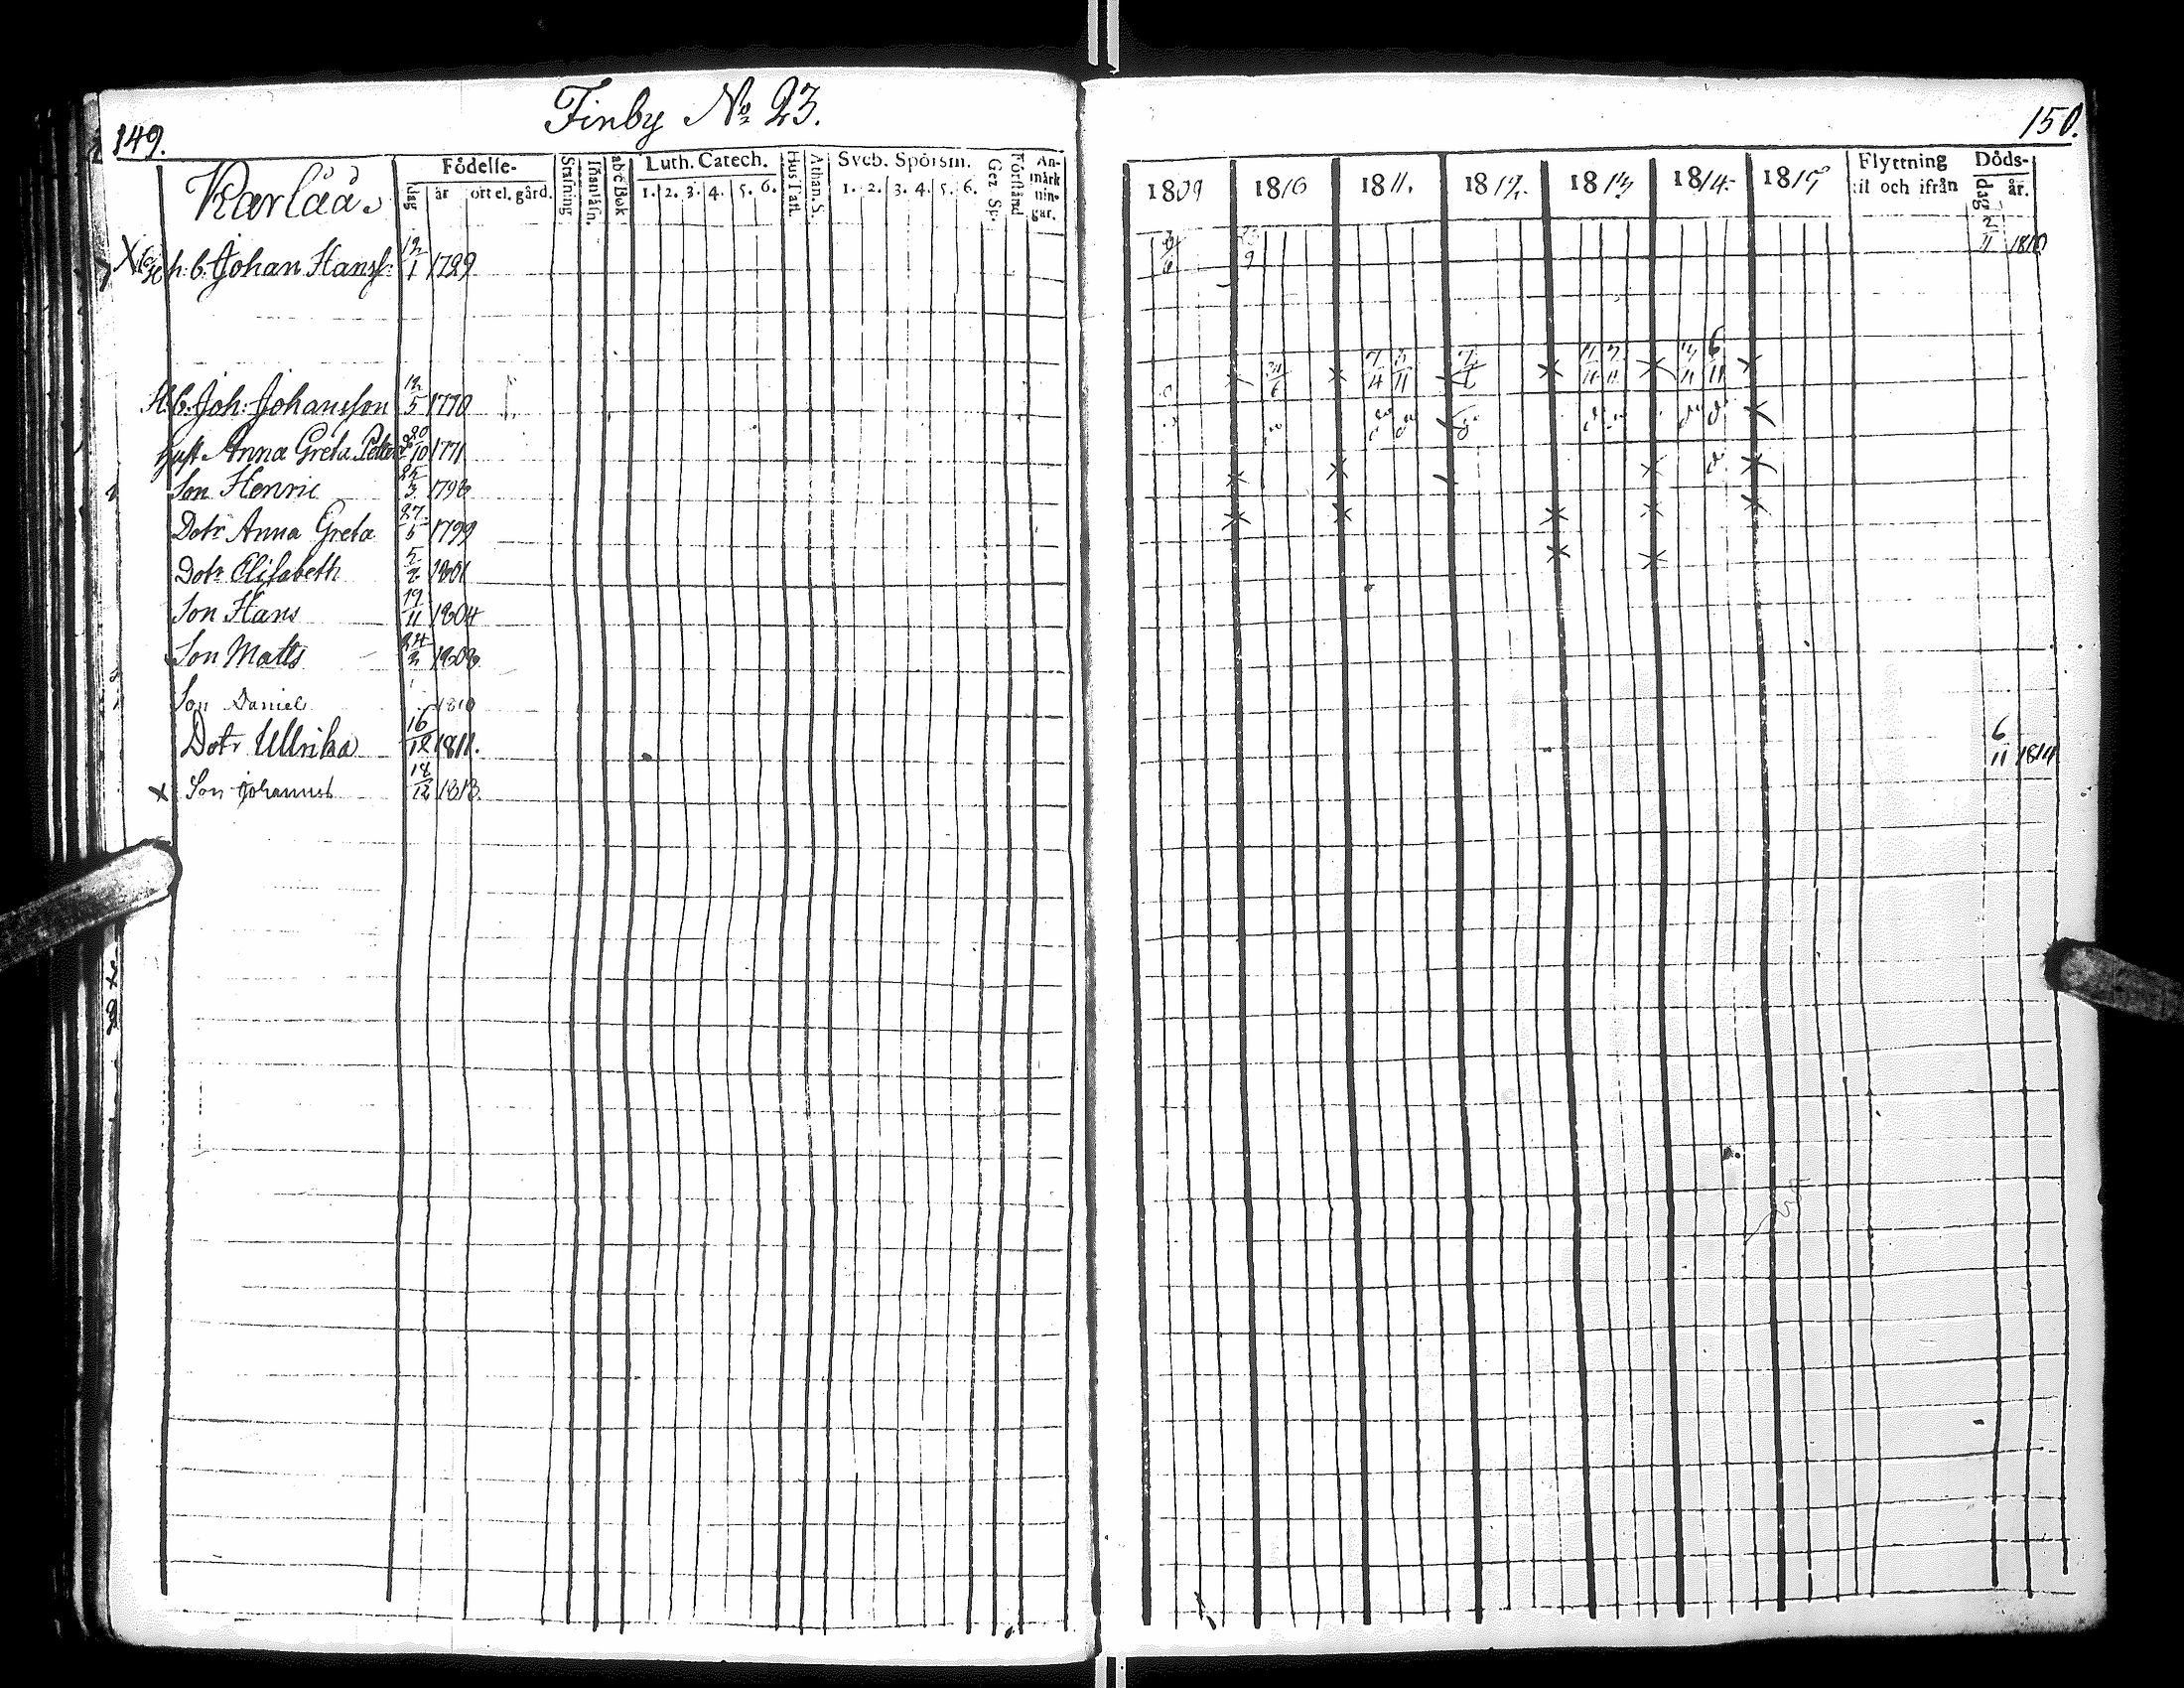 Finby No 23.
149.
Karlää.
Födelse-
dag
år
ort el. gård.
Stafning
Innanläsn.
abc Bok
Luth. Catech.
1. 2. 3. 4. 5. 6.
Hus Tafl.
Athan. S.
Sveb. Spörsm.
1. 2. 3. 4. 5. 6.
Gez. Sp.
Förstånd
An-
märk
nin-
gar.
h. b. Johan Hanss: 12/1 1729
H. b. Joh: Johansson 12/5 1770
hust Anna Greta 20/10 1771
Son Henric 1798
Dotr Anna Greta 27/5 1799
Dotr Elisabeth 1801
Son Hans 19/11 1804
Son Matts 24 1808
Son Daniel 1810
Dotr Ullrika 16/12 1811.
x Son Johannes 18/12 1813.
150.
1809
1810
1811.
1812.
1813
1814
1815
Flyttning
til och ifrån
Döds-
dag
år.
2/11 1810
6/11 1814